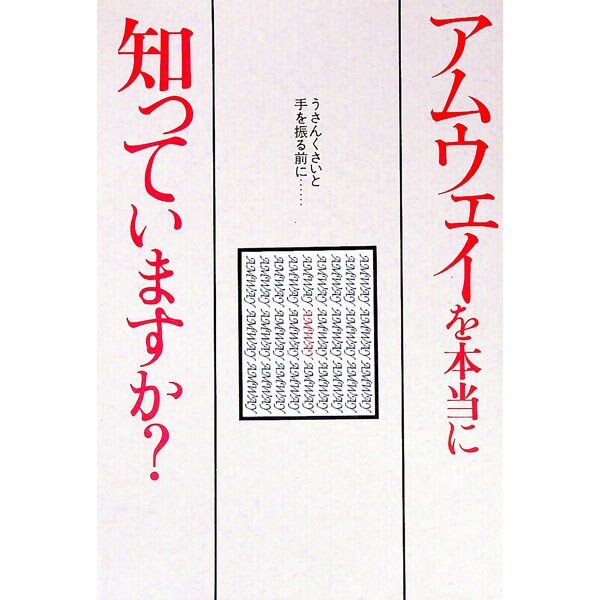 アムウェイを本当に
知っていますか?
うさんくさいと
手を振る前に……
AMWAY AMWAY AMWAY
AMWAY AMWAY AMWAY
AMWAY AMWAY AMWAY
AMWAY AMWAY AMWAY
AMWAY AMWAY AMWAY
AMWAY AMWAY AMWAY
AMWAY AMWAY AMWAY
AMWAY AMWAY AMWAY
AMWAY AMWAY AMWAY